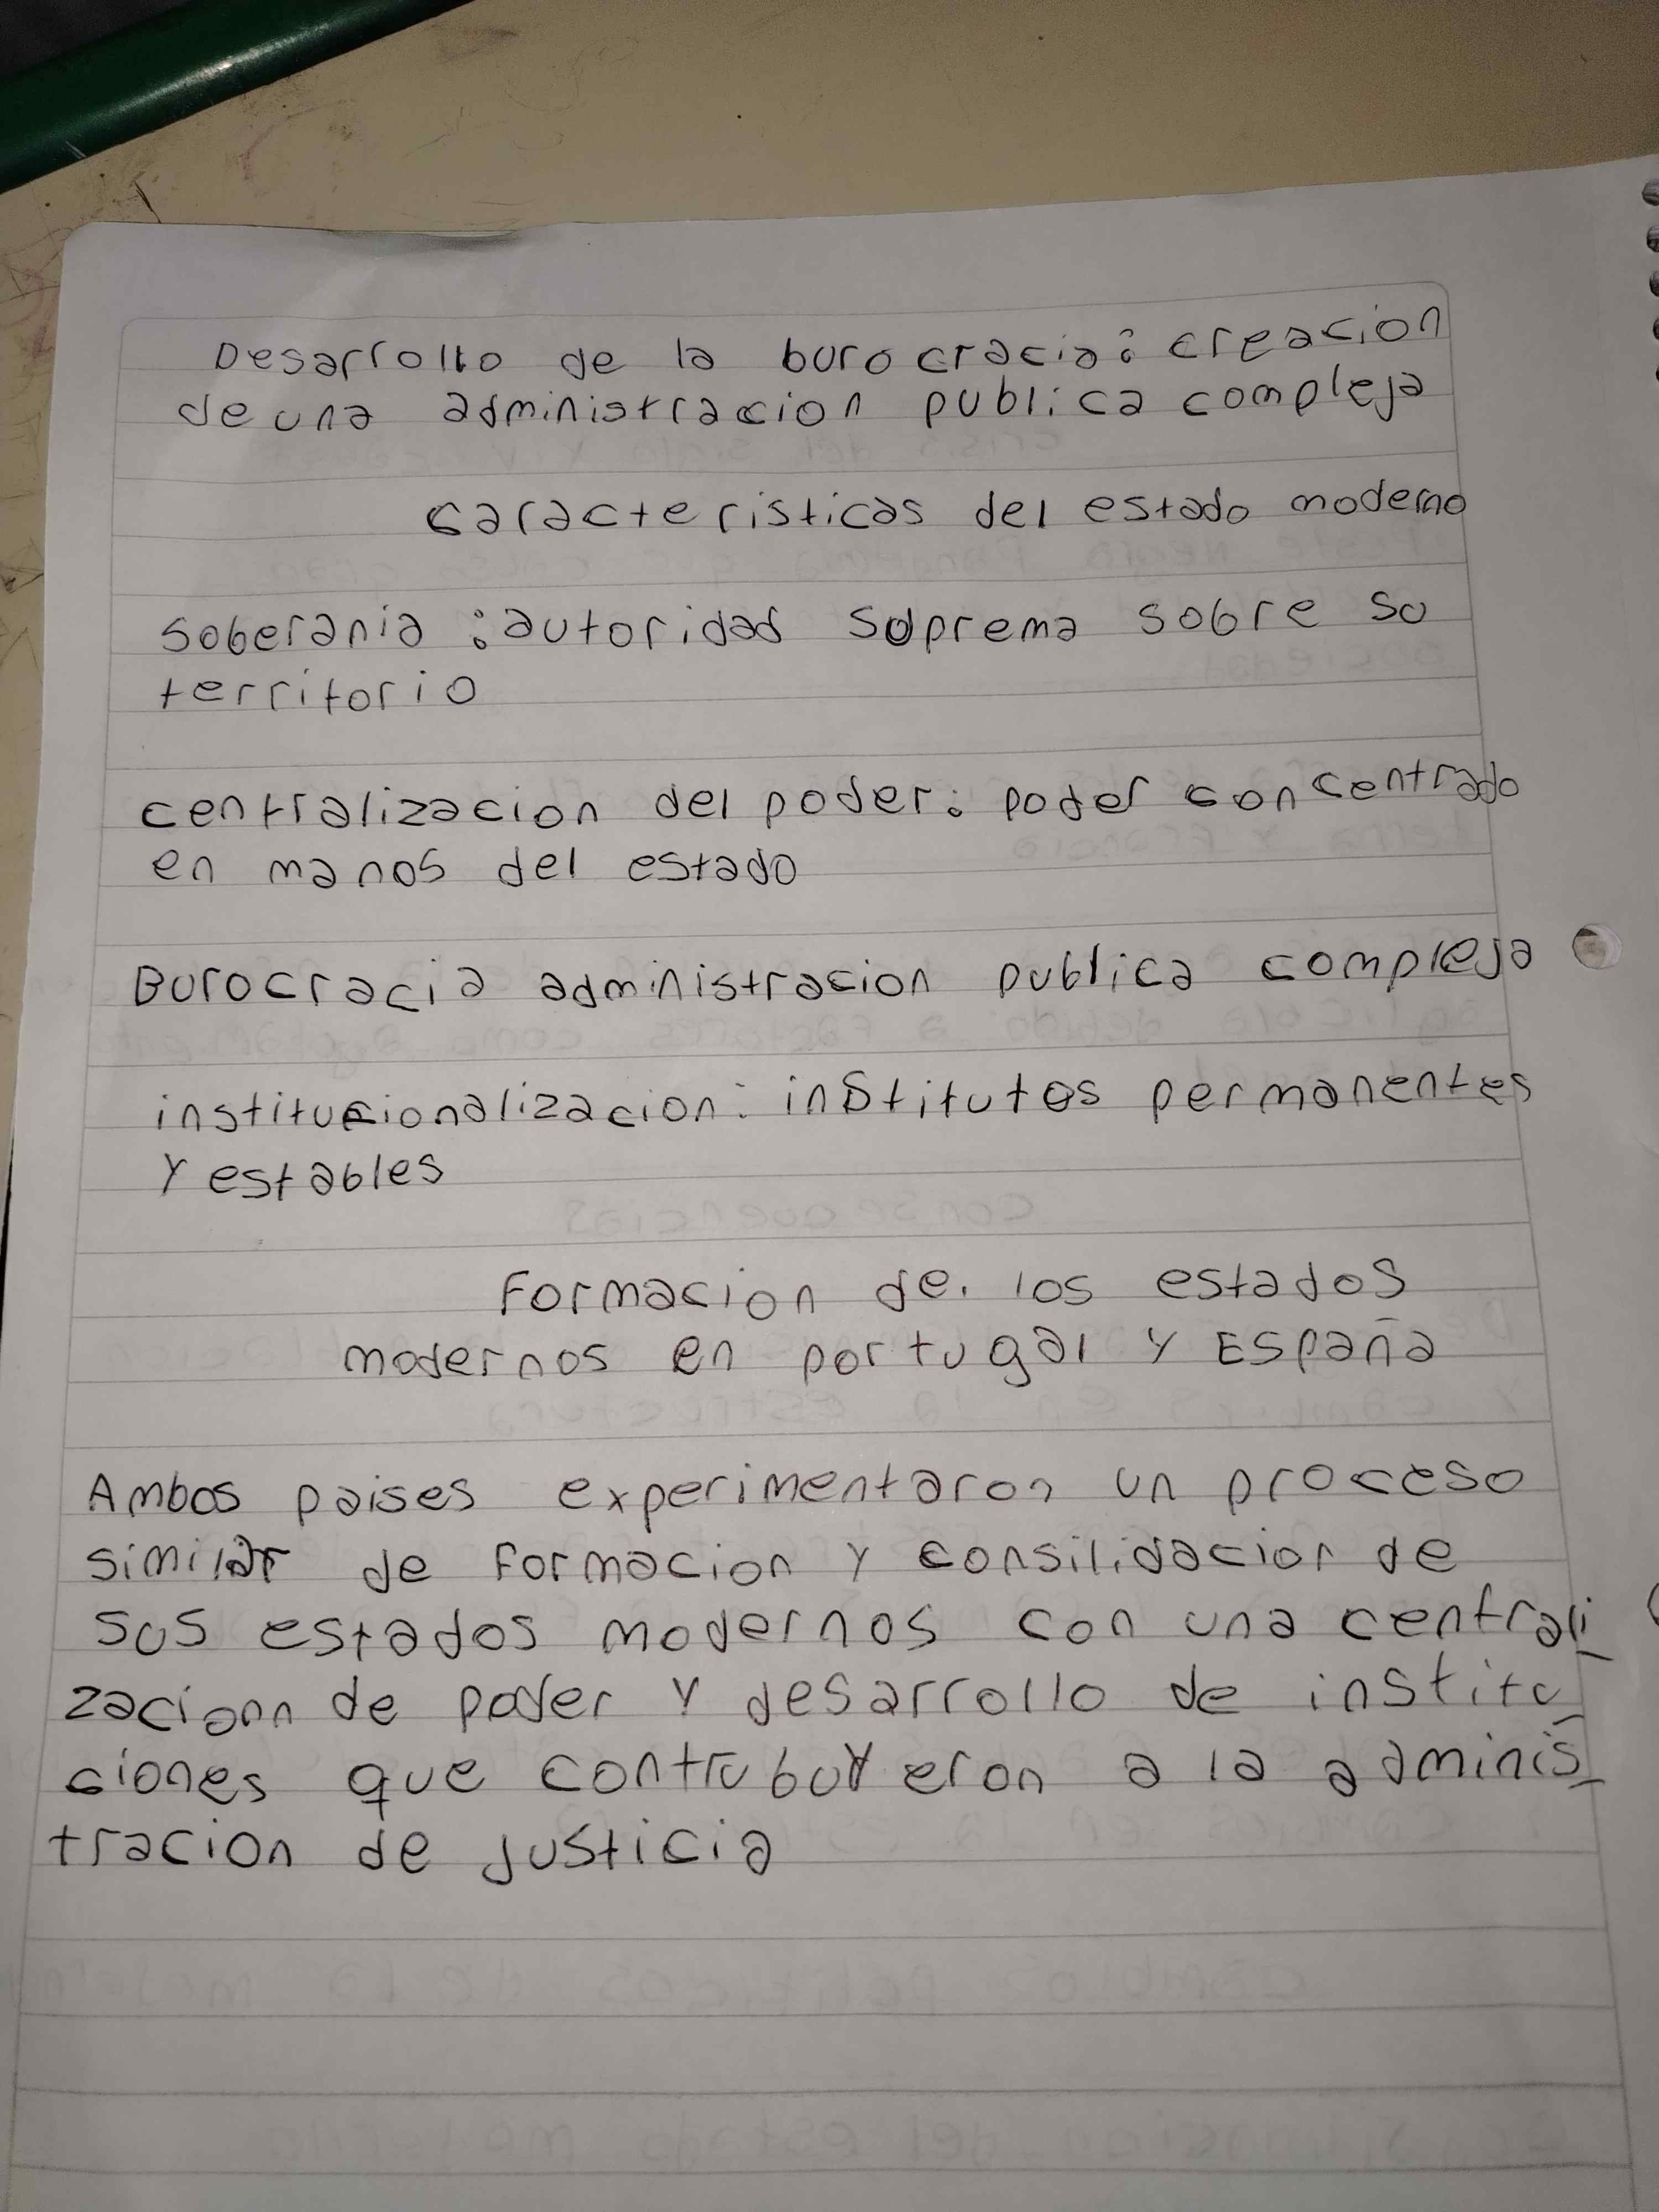 Desarrollo de la burocracia: creacion
de una administracion publica compleja
caracteristicas del estado moderno
soberania : autoridad suprema sobre su
territorio
centralizacion del poder: poder concentrado
en manos del estado
Burocracia administracion publica compleja
institucionalizacion: institutos permanentes
Y estables
Formacion de. los estados
modernos en portugal Y España
Ambos paises experimentaron un proceso
similar de formacion y consilidacion de
sus estados modernos con una centrali_
zacionn de poder y desarrollo de institu_
ciones que contrubuyeron a la adminis_
tracion de justicia